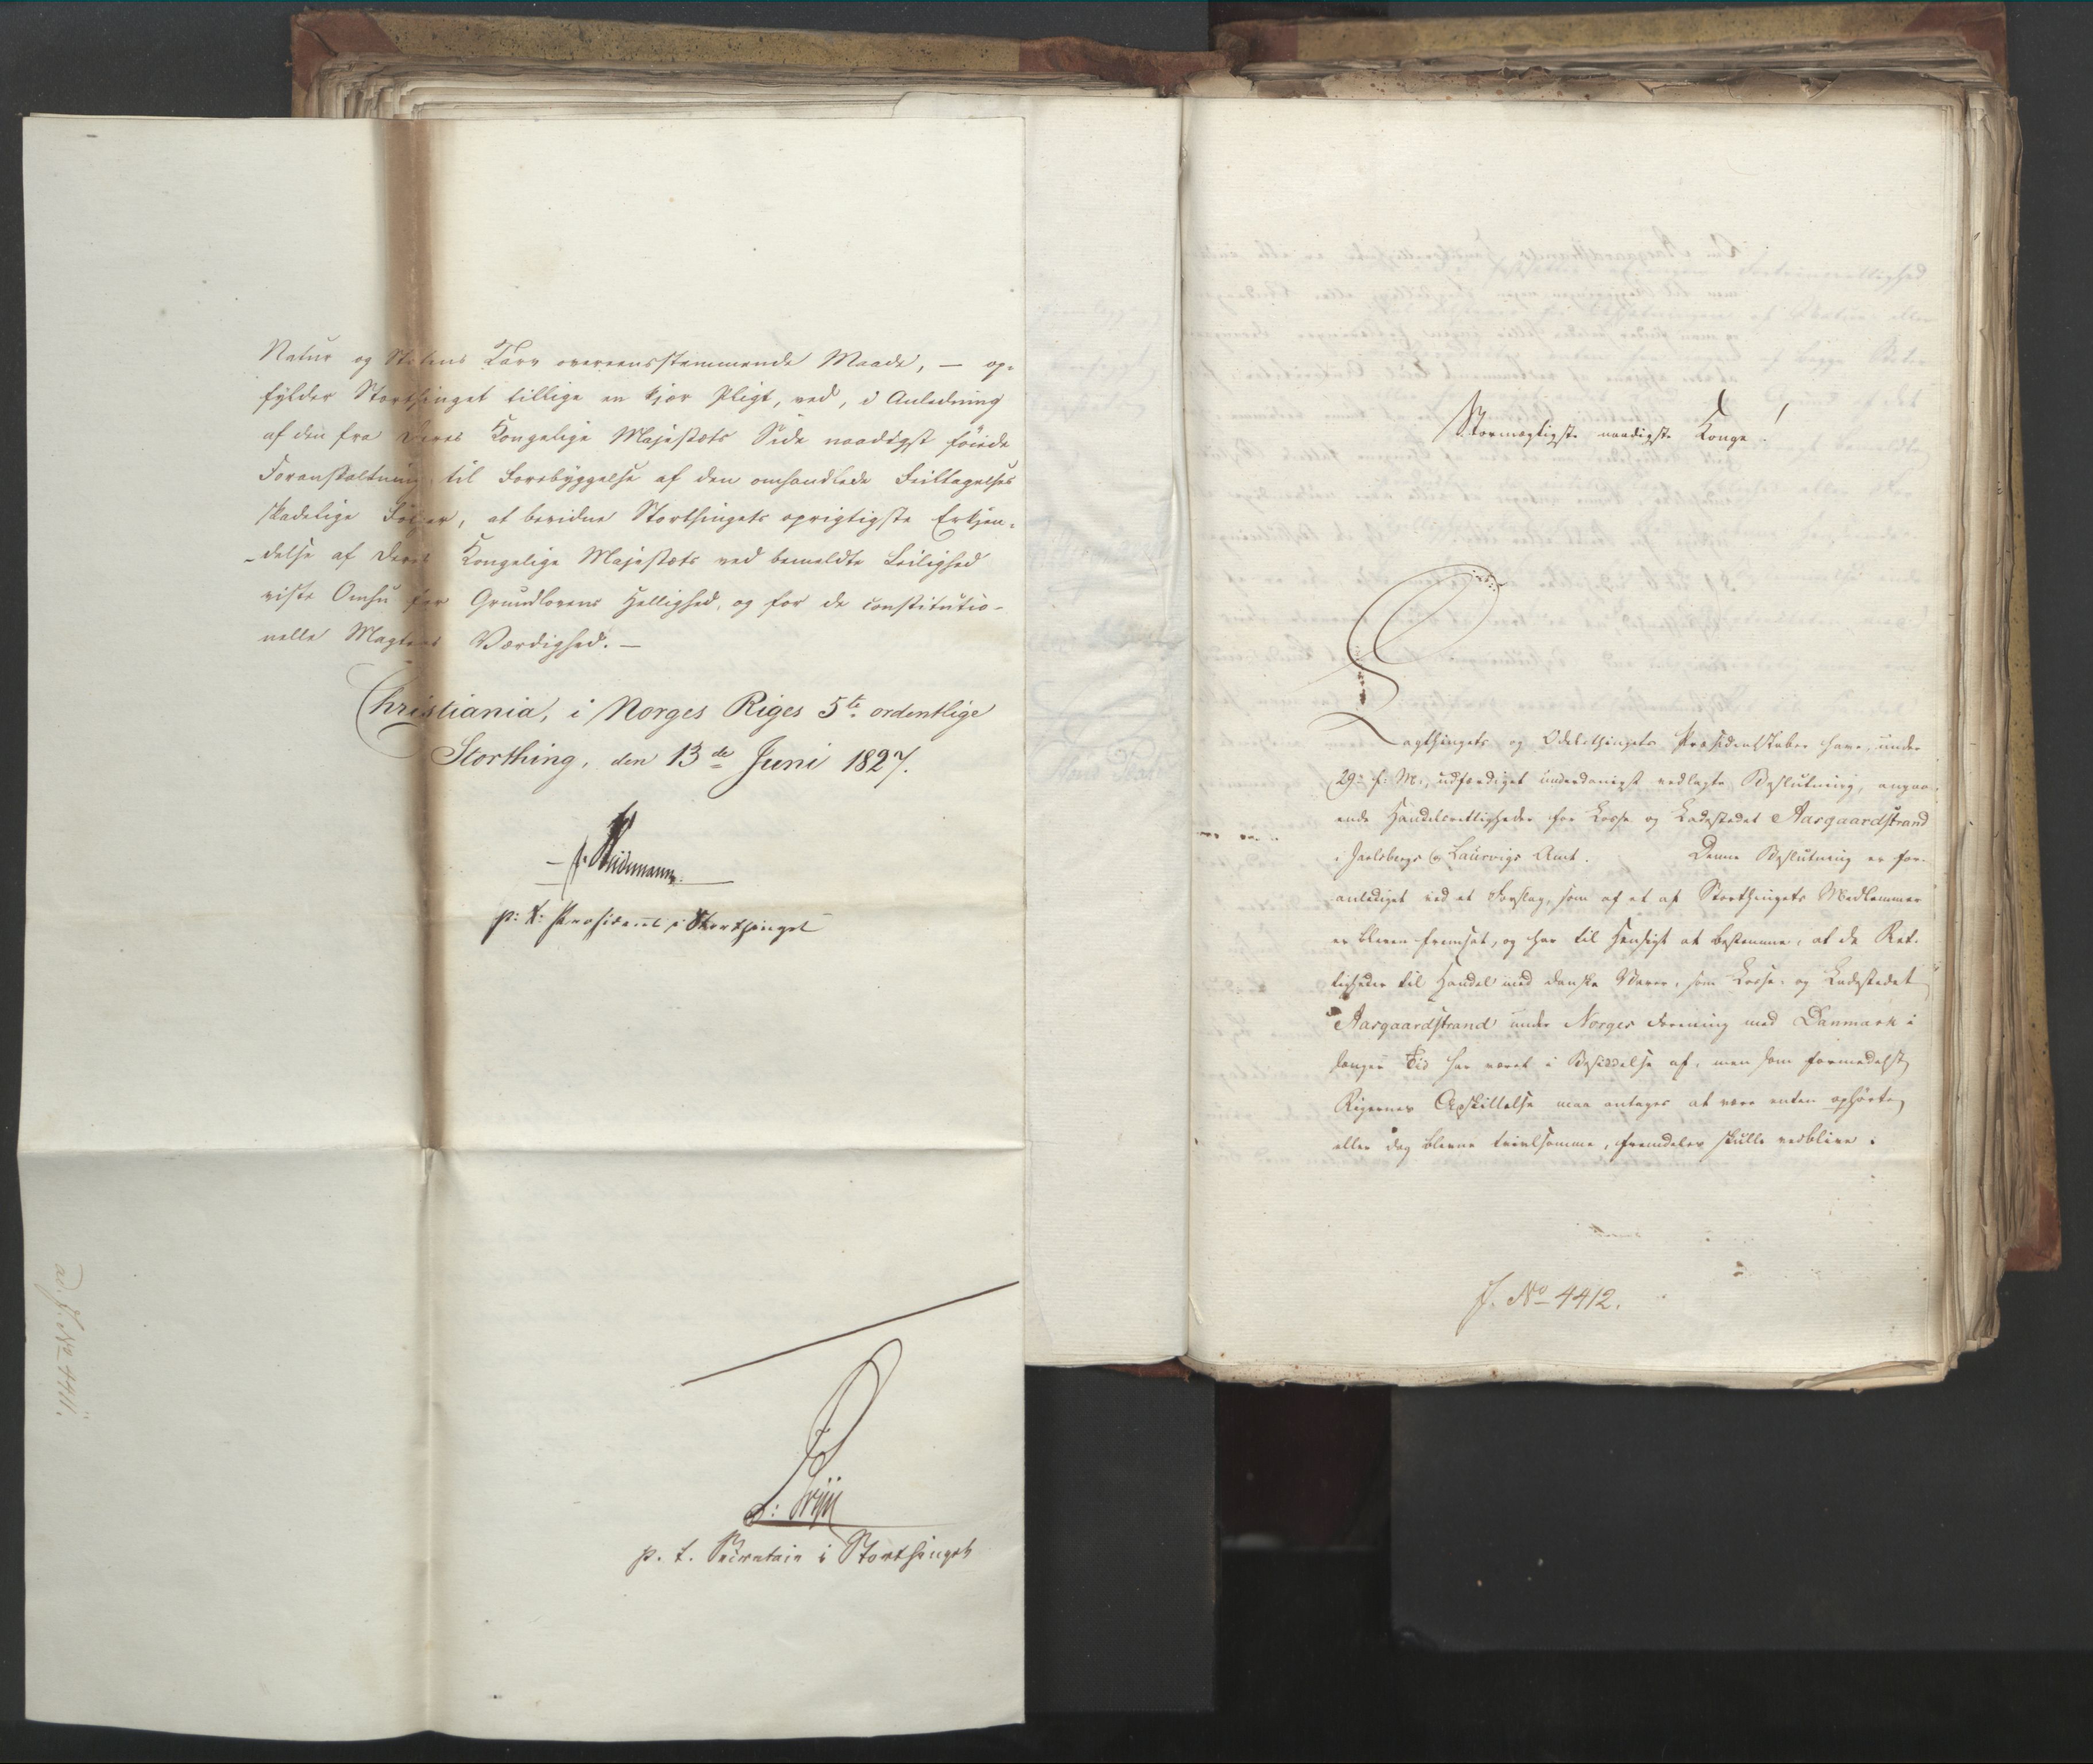 Natur og Statens Tarv overeensstemmende Maade, — op-
fylder Storthinget tillige en kjær Pligt, ved, i Anledning
af den fra Deres Kongelige Majestæts Side naadigst føiede
Foranstaltning til Forebyggelse af den omhandlede Iilltagelses
skadelige Følger, at bevidne Storthingets oprigtigste Erkjen-
-delse af Deres Kongelige Majestæts ved bemeldte Leilighed
viste Omhu for Grundlovens Hellighed, og for de constitutio-
nelle Magters Værdighed. —
Christiania, i Norges Riges 5te ordentlige
Storthing, den 13de Juni 1827.
p: t: Præsident i Storthinget
p. t. Secretair i Storthinget
ad. J. No 4411.
Stormægtigste naadigste Konge!
Lagthingets og Odelsthingets Præsidentskaber have, under
29 f: M:, udfærdiget underdanigst vedlagte Beslutning, angaa-
ende Handelsrettigheder for Losse og Ladestedet Aasgaardstrand
i Jarlsbergs & Laurvigs Amt. Denne Beslutning er for-
anlediget ved et Forslag, som af et af Storthingets Medlemmer
er bleven fremsat, og har til Hensigt at bestemme, at de Ret-
tigheder til Handel med danske Varer, som Losse- og Ladestedet
Aasgaardstrand under Norges Forening med Danmark i
længere Tid har været i Besiddelse af, men som formedelst
Rigernes Adskillelse maa antages at være enten ophørte,
eller dog blevne tvivlsomme, fremdeles skulle vedblive i
J. No 4412.